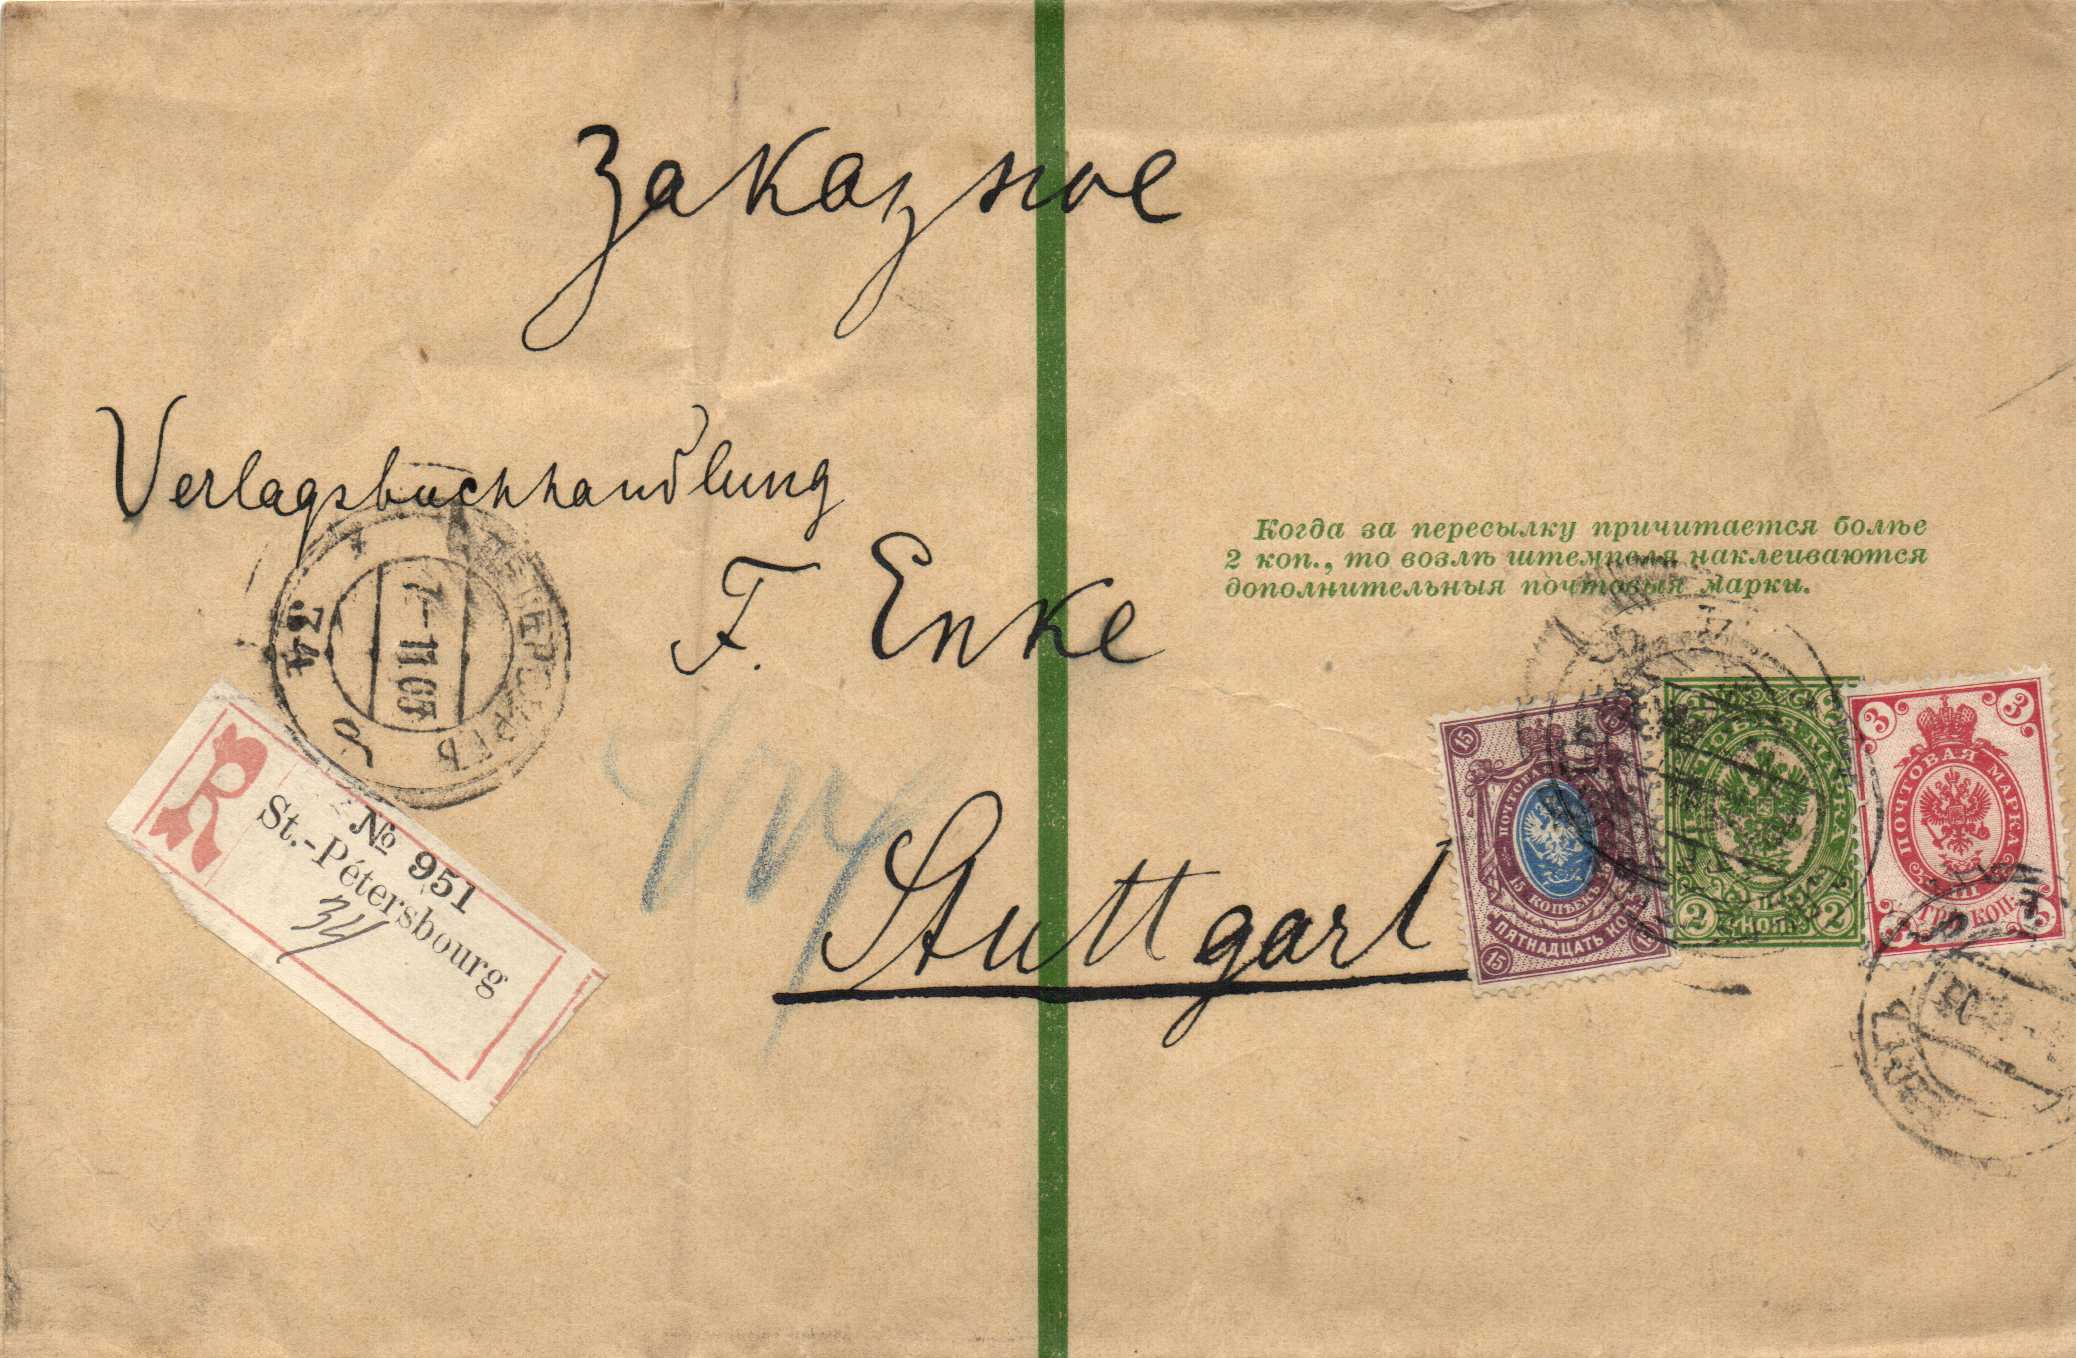 Заказное
Verlagsbuchhandlung
F. Enke
Stuttgart
Когда за пересылку причитается болѣе
2 коп., то возлѣ штемпеля наклеиваются
дополнительныя почтовыя марки.
34
7-11 05
ПЕТЕРБУРГЪ
R
№ 951
St.-Pétersbourg
34
15
15
15 КОПѢЕКЪ 15
ПЯТНАДЦАТЬ КОП.
15
ПОЧТОВАЯ МАРКА
2 КОП. 2
3 3
ПОЧТОВАЯ МАРКА
ТРИ КОП.
3 3